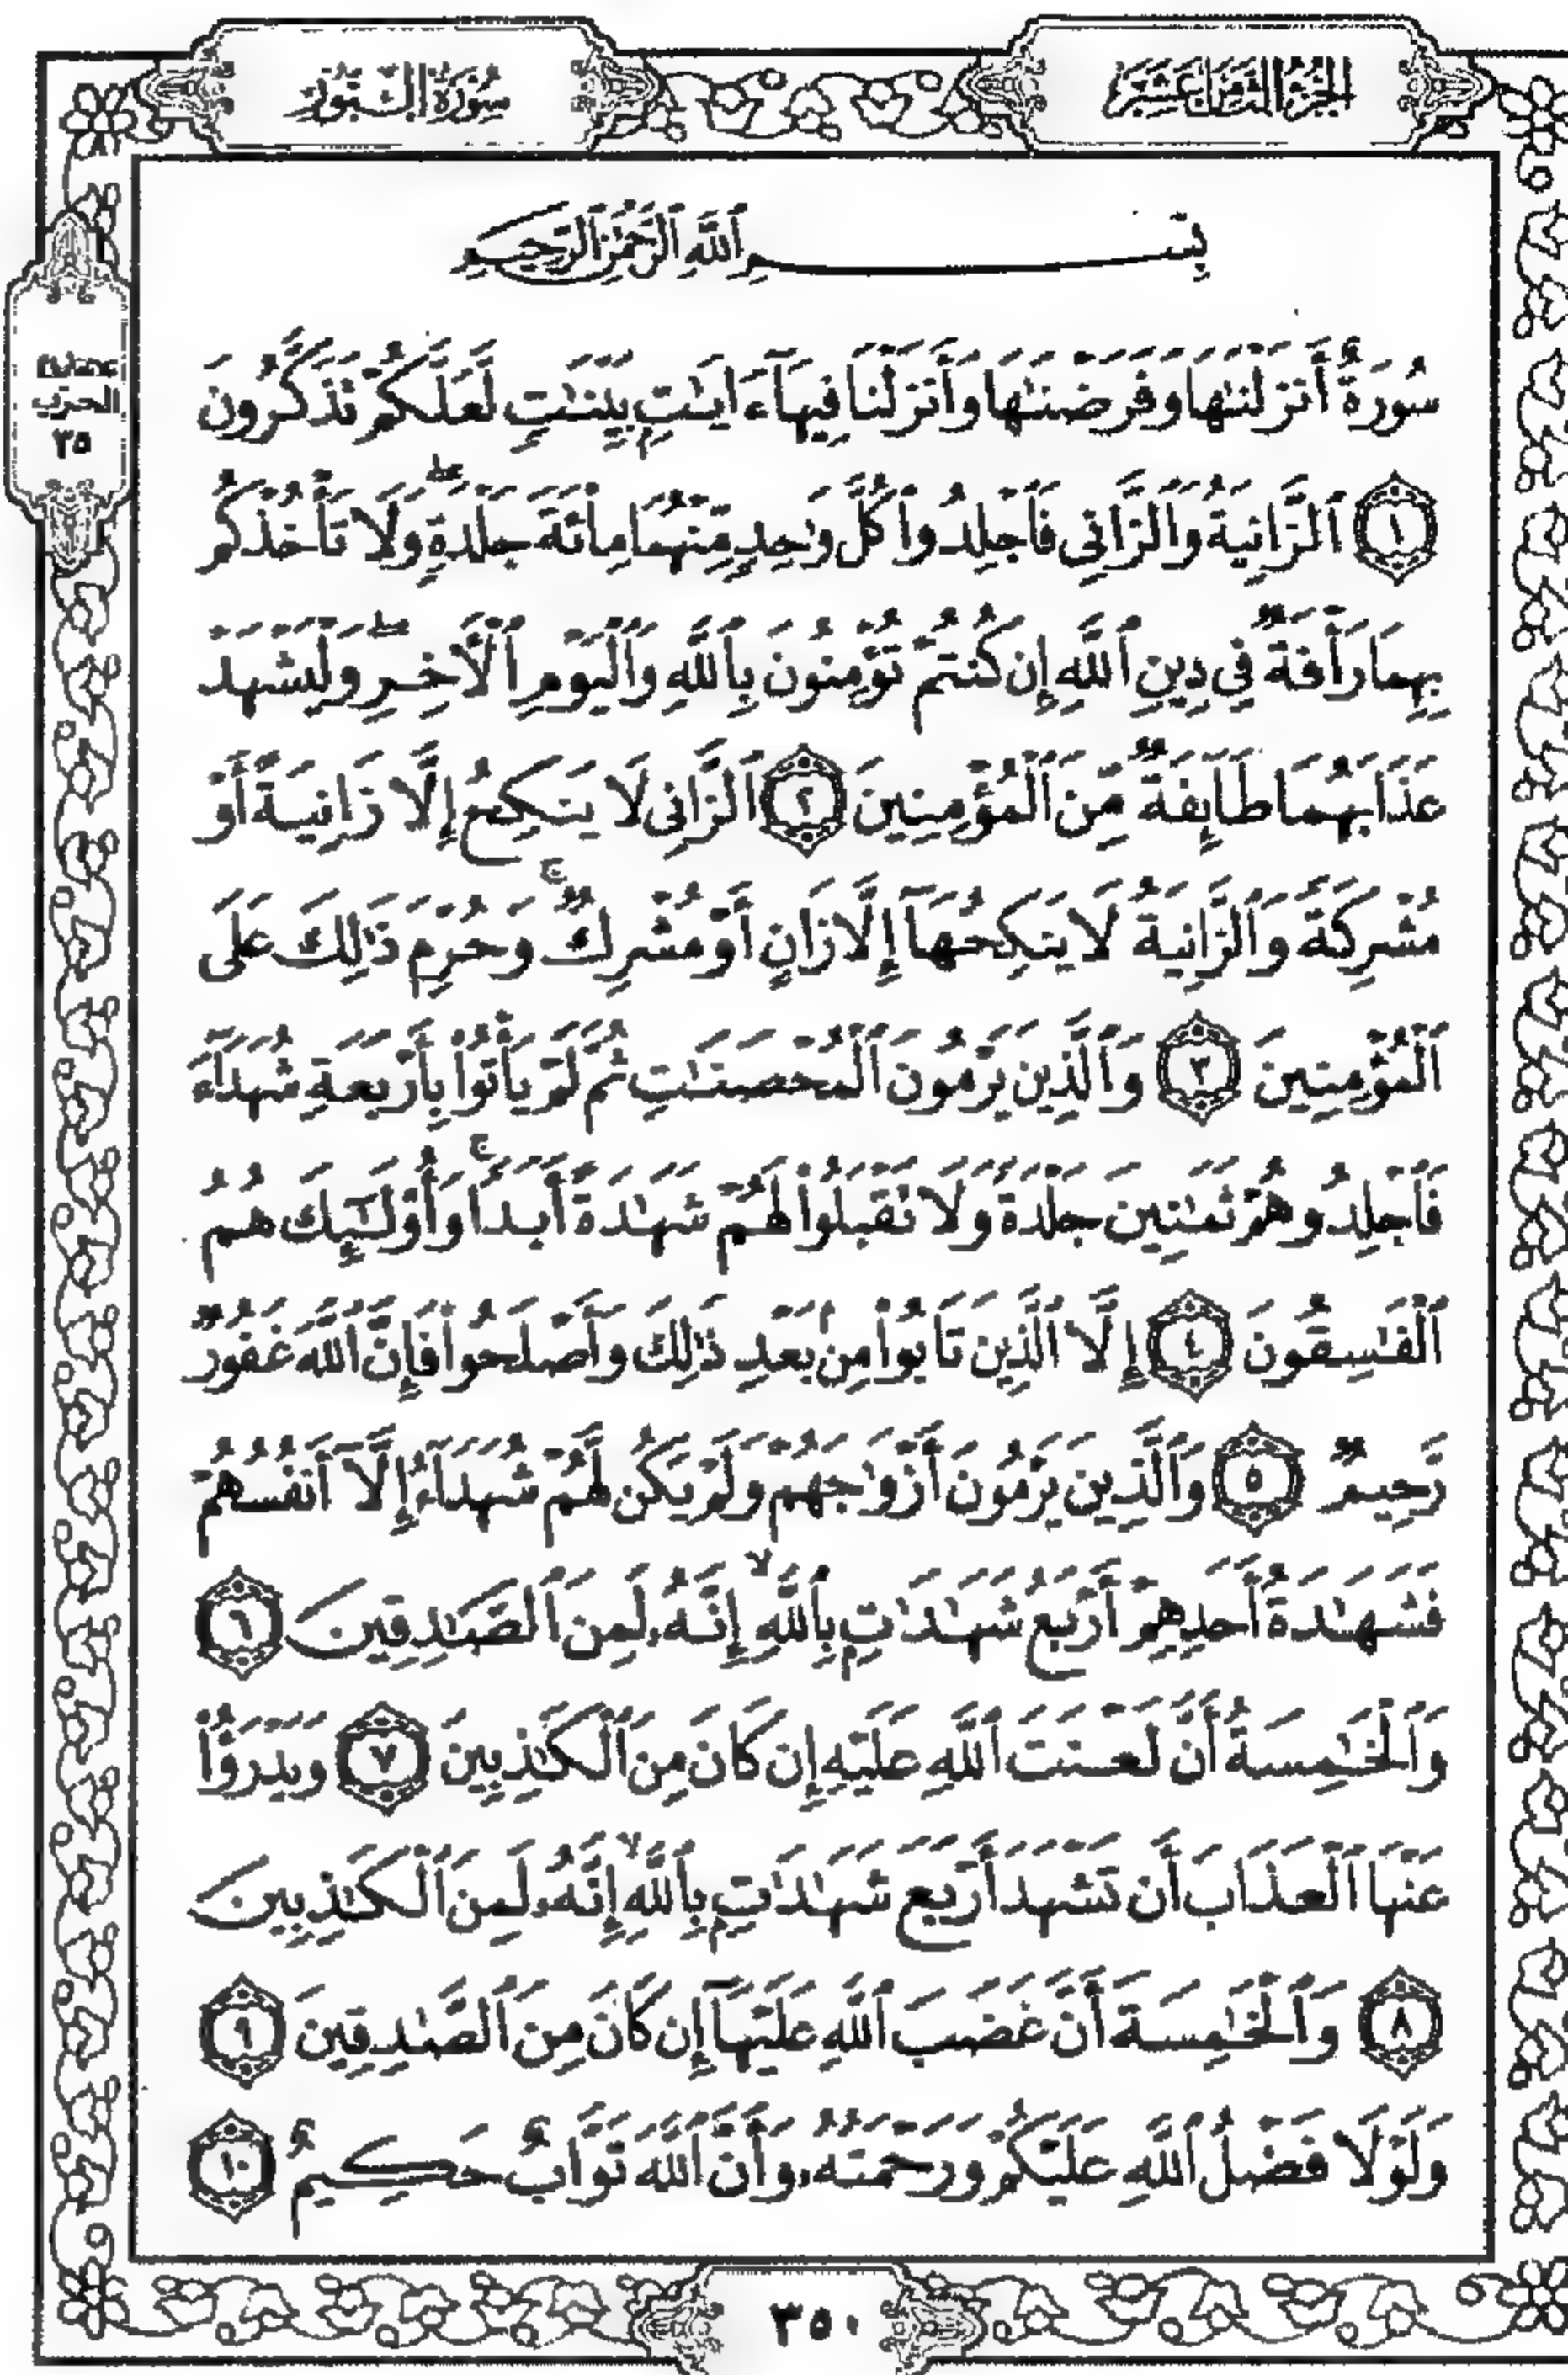 الجزء الثامن عشر
سورة النور
الحزب
٣٥
بِسْمِ ٱللَّهِ ٱلرَّحْمَٰنِ ٱلرَّحِيمِ
سُورَةٌ أَنزَلْنَٰهَا وَفَرَضْنَٰهَا وَأَنزَلْنَا فِيهَآ ءَايَٰتٍۭ بَيِّنَٰتٍ لَّعَلَّكُمْ تَذَكَّرُونَ
١ ٱلزَّانِيَةُ وَٱلزَّانِى فَٱجْلِدُوا۟ كُلَّ وَٰحِدٍ مِّنْهُمَا مِا۟ئَةَ جَلْدَةٍ ۖ وَلَا تَأْخُذْكُم
بِهِمَا رَأْفَةٌ فِى دِينِ ٱللَّهِ إِن كُنتُمْ تُؤْمِنُونَ بِٱللَّهِ وَٱلْيَوْمِ ٱلْأَخِرِ ۖ وَلْيَشْهَدْ
عَذَابَهُمَا طَآئِفَةٌ مِّنَ ٱلْمُؤْمِنِينَ ٢ ٱلزَّانِى لَا يَنكِحُ إِلَّا زَانِيَةً أَوْ
مُشْرِكَةً وَٱلزَّانِيَةُ لَا يَنكِحُهَآ إِلَّا زَانٍ أَوْ مُشْرِكٌ ۚ وَحُرِّمَ ذَٰلِكَ عَلَى
ٱلْمُؤْمِنِينَ ٣ وَٱلَّذِينَ يَرْمُونَ ٱلْمُحْصَنَٰتِ ثُمَّ لَمْ يَأْتُوا۟ بِأَرْبَعَةِ شُهَدَآءَ
فَٱجْلِدُوهُمْ ثَمَٰنِينَ جَلْدَةً وَلَا تَقْبَلُوا۟ لَهُمْ شَهَٰدَةً أَبَدًا ۚ وَأُو۟لَٰٓئِكَ هُمُ
ٱلْفَٰسِقُونَ ٤ إِلَّا ٱلَّذِينَ تَابُوا۟ مِنۢ بَعْدِ ذَٰلِكَ وَأَصْلَحُوا۟ فَإِنَّ ٱللَّهَ غَفُورٌ
رَّحِيمٌ ٥ وَٱلَّذِينَ يَرْمُونَ أَزْوَٰجَهُمْ وَلَمْ يَكُن لَّهُمْ شُهَدَآءُ إِلَّآ أَنفُسُهُمْ
فَشَهَٰدَةُ أَحَدِهِمْ أَرْبَعُ شَهَٰدَٰتٍۭ بِٱللَّهِ ۙ إِنَّهُۥ لَمِنَ ٱلصَّٰدِقِينَ ٦
وَٱلْخَٰمِسَةُ أَنَّ لَعْنَتَ ٱللَّهِ عَلَيْهِ إِن كَانَ مِنَ ٱلْكَٰذِبِينَ ٧ وَيَدْرَؤُا۟
عَنْهَا ٱلْعَذَابَ أَن تَشْهَدَ أَرْبَعَ شَهَٰدَٰتٍۭ بِٱللَّهِ ۙ إِنَّهُۥ لَمِنَ ٱلْكَٰذِبِينَ
٨ وَٱلْخَٰمِسَةَ أَنَّ غَضَبَ ٱللَّهِ عَلَيْهَآ إِن كَانَ مِنَ ٱلصَّٰدِقِينَ ٩
وَلَوْلَا فَضْلُ ٱللَّهِ عَلَيْكُمْ وَرَحْمَتُهُۥ وَأَنَّ ٱللَّهَ تَوَّابٌ حَكِيمٌ ١٠
٣٥٠